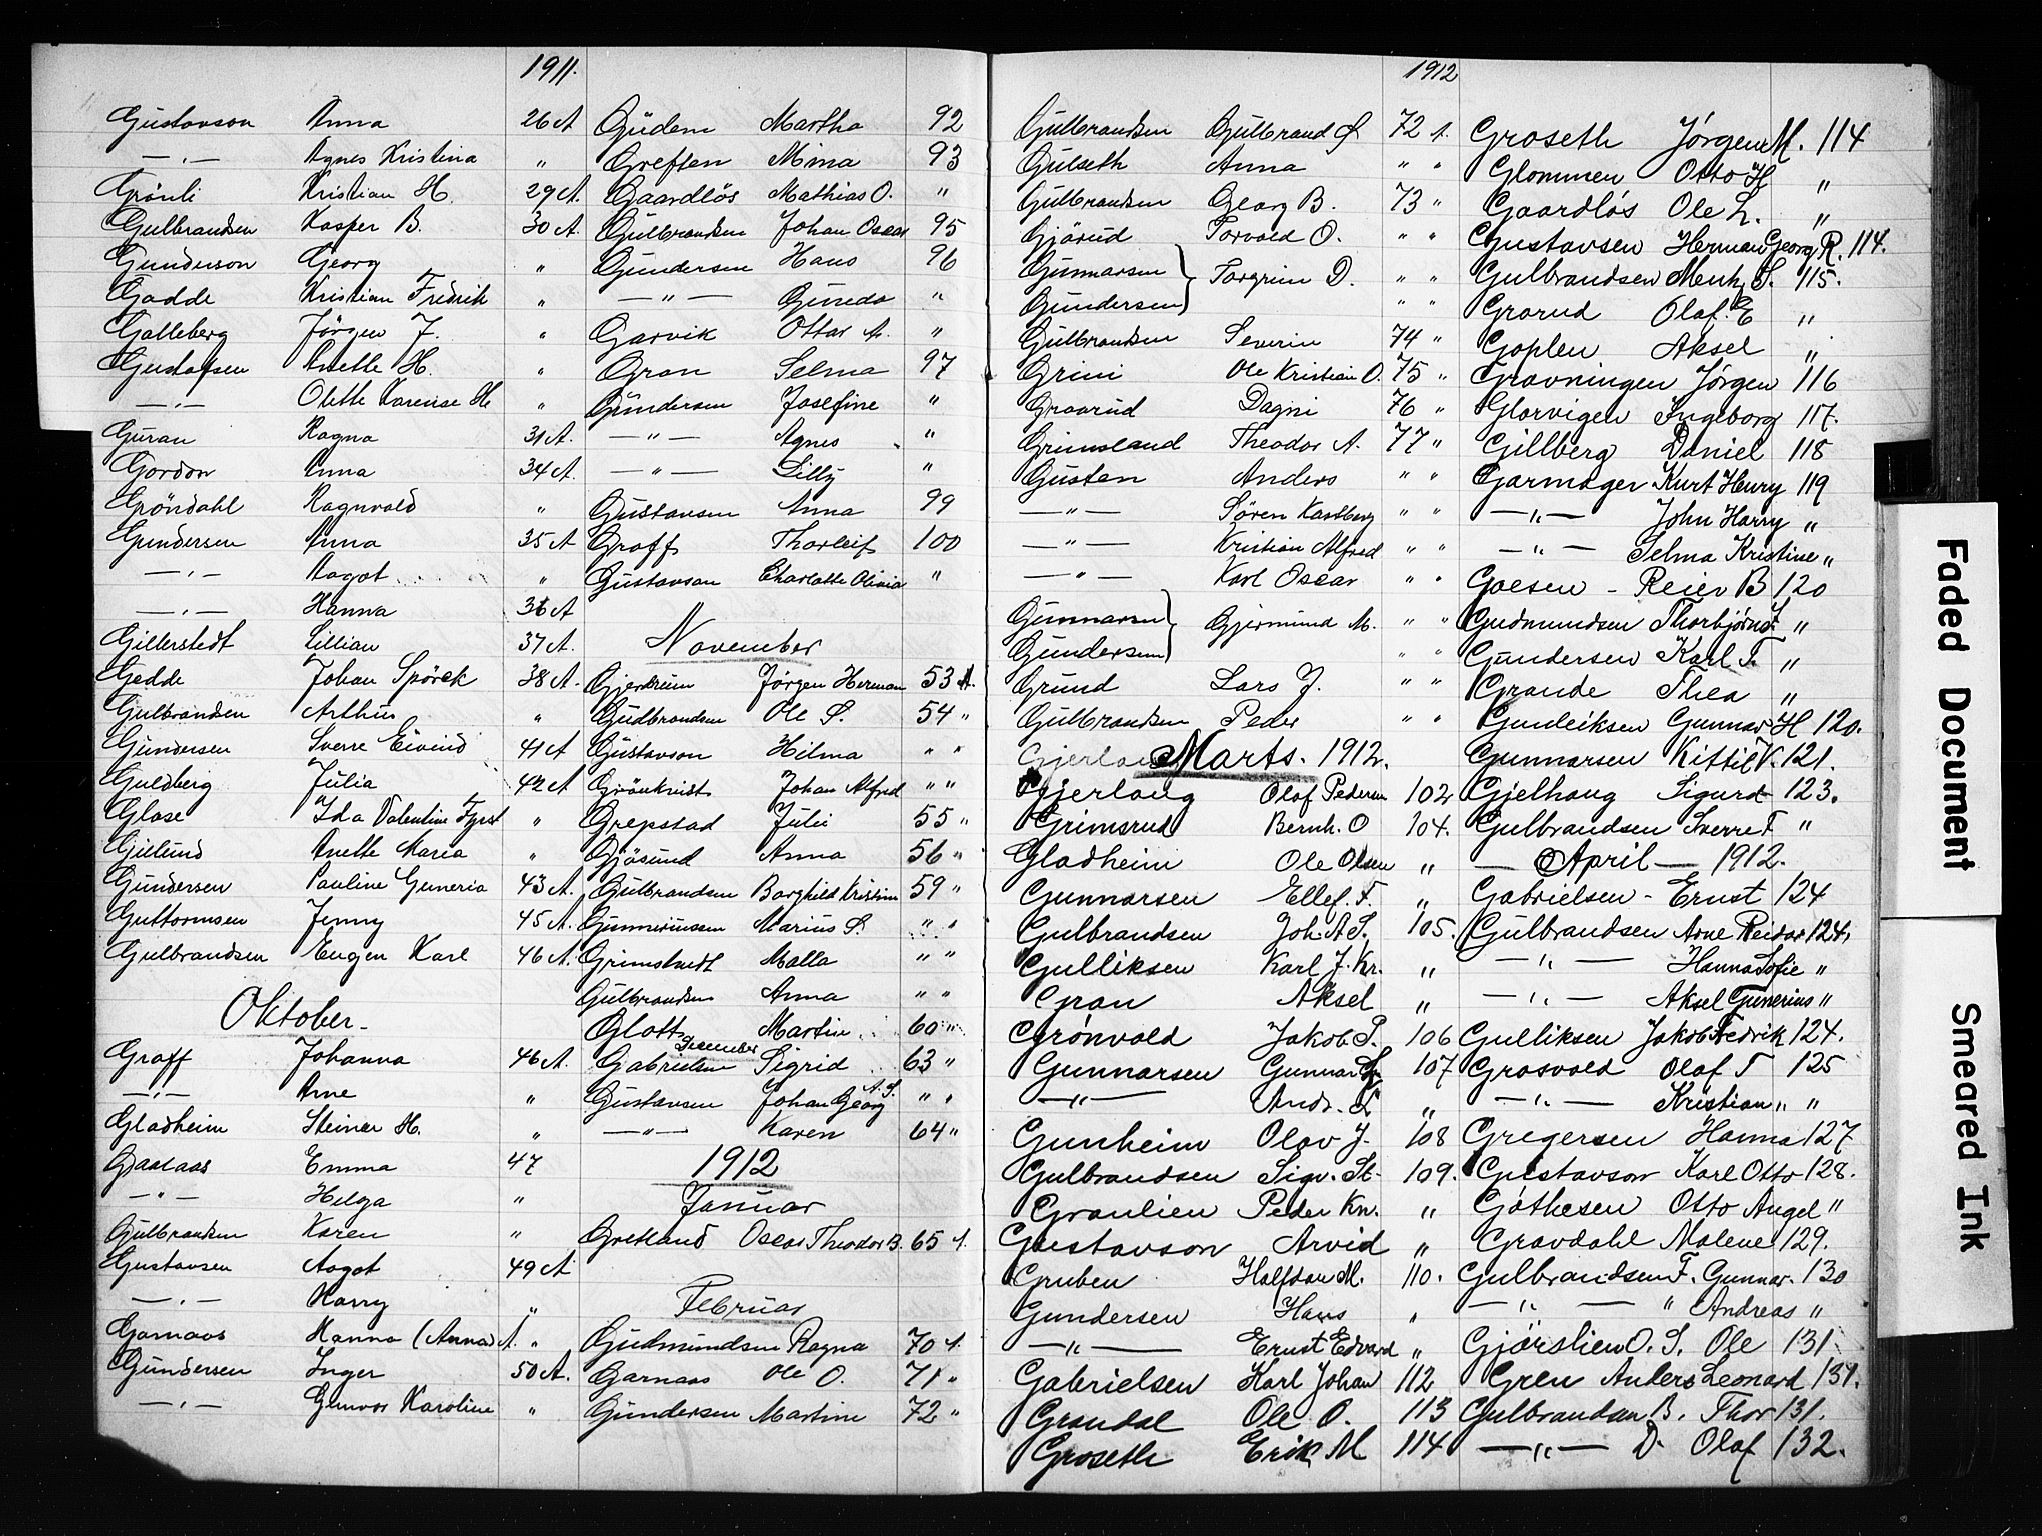 1911.
Gustavson Anna 26 A
—„— Agnes Kristina "
Grönli Kristian H. 29 A.
Gulbrandsen Kasper B. 30 A.
Gunderson Georg "
Gadde Kristian Fredrik "
Galleberg Jörgen J. "
Gustafsen Anette H. "
—„— Olette Karense H "
Guran Ragna 31 A.
Gordon Anna 34 A.
Gröndahl Ragnvald "
Gundersen Anna 35 A
—„— Aagot "
—„— Hanna 36 A
Gillerstedt Lillian 37 A.
Gedde Johan Spörck 38 A.
Gulbrandsen Arthur "
Gundersen Sverre Eivind 41 A
Guldberg Julia 42 A
Glase Ida Valentine "
Gjelund Anette Maria "
Gundersen Pauline Guneria 43 A.
Guttormsen Jenny 45 A.
Gulbrandsen Eugen Karl 46 A.
Oktober
Graff Johanna 46 A.
—„— Arne "
Gladheim Steinar H. "
Gaasaas Emma 47
—"— Helga "
Gulbrandsen Karen "
Gustavsen Aagot 49 A
—„— Harry "
Garnaas Hanna (Anna) A. "
Gundersen Inger 50 A.
—„— Gunvor Karoline "
Gudem Martha 92
Greften Mina 93
Gaardlös Mathias O. "
Gulbrandsen Johan Oscar 95
Gundersen Hans 96
—"— Guneda "
Garvik Ottar A. "
Gran Selma 97
Gundersen Josefine "
—"— Agnes "
—"— Lilly "
Gustavsen Anna 99
Graff Thorleif 100
Gustavson Charlotte Olivia "
November
Gjerdrum Jörgen Herman 53 A.
Gudbrandsen Ole S. 54 "
Gustavson Hilma " "
Grönkvist Johan Alfred " "
Grepstad Julie 55 "
Gjösund Anna 56 "
Gulbrandsen Borghild Kristine 59 "
Gunneriussen Marius S. " "
Grimstvedt Malla " "
Gulbrandsen Anna " "
Glott Martin 60 "
December
Gabrielsen Sigrid 63 "
Gustavsen Johan Georg A. S. " "
—"— Karen 64 "
1912
Januar
Gretland Oscar Theodor B. 65 A.
Februar
Gudmundsen Ragna 70 A.
Garnaas Ole O. 71 "
Gundersen Martin 72 "
1912
Gulbrandsen Gulbrand S. 72 A.
Gulseth Anna " "
Gulbrandsen Georg B. 73 "
Gjörud Torvald O. " "
Gunnarsen } Torgrim D. " "
Gundersen } " "
Gulbrandsen Severin 74 "
Grini Ole Kristian O. 75 "
Graarud Dagni 76 "
Grimsland Theodor A. 77 "
Gusten Anders " "
—"— Sören Karlberg " "
—"— Kristian Alfred " "
—"— Karl Oscar " "
Gunnarsen } Gjermund M. " "
Gundersen } " "
Grund Lars J. " "
Gulbrandsen Peder " "
Marts. 1912.
Gjerlaug Olaf Pedersen 102
Grimsrud Bernh. O 104.
Gladheim Ole Olsen "
Gunnarsen Ellef. T. "
Gulbrandsen Joh. A. S. 105.
Gulliksen Karl J. Kr. "
Gran Aksel "
Grönvold Jakob. P. 106
Gunnarsen Gunnar 107
—"— Andr. L "
Gunheim Olav J. 108
Gulbrandsen Sigv. St- 109.
Graulien Peder Kn. "
Gustavson Arvid "
Gruben Halfdan M. 110.
Gundersen Hans "
—"— Ernst Edvard "
Gabrielsen Karl Johan 112
Grandal Ole O. 113
Groseth Erik M 114
Groseth Jørgen M. 114
Glommen Otto H "
Gaardløs Ole L. "
Gustavsen Herman Georg R. 114.
Gulbrandsen Mentz S. 115.
Grorud Olaf. E "
Goplen Aksel "
Gravningen Jørgen 116
Glorvigen Ingeborg 117.
Gillberg Daniel 118
Garmager Kurt Henry 119
—„— John Harry "
—„— Selma Kristine "
Goesen - Reier B 120
Gudmundsen Thorbjørn T. "
Gundersen Karl T. "
Grande Thea "
Gundeiksen Gunnar H 120.
Gunnarsen Kittil K. 121.
Gjelhaug Sigurd 123.
Gulbrandsen Sverre F "
— April — 1912.
Gabrielsen - Ernst 124
Gulbrandsen Arne Reidar 124.
—„— Hanna Sofie "
—„— Aksel Gunerius "
Gulliksen Jakob Fredrik 124.
Grosvold Olaf T 125
—„— Kristian " "
Gregersen Hanna 127
Gustavson Karl Otto 128.
Gøthesen Otto Angel "
Gravdahl Malene 129.
Gulbrandsen F. Gunnar. 130
—„— " Andreas "
Gjörslien O. S. Ole 131
Gren Anders Leonard 131.
Gulbrandsen B. Thor 131.
—„— D. Olaf 132.
Faded Document
Smeared Ink